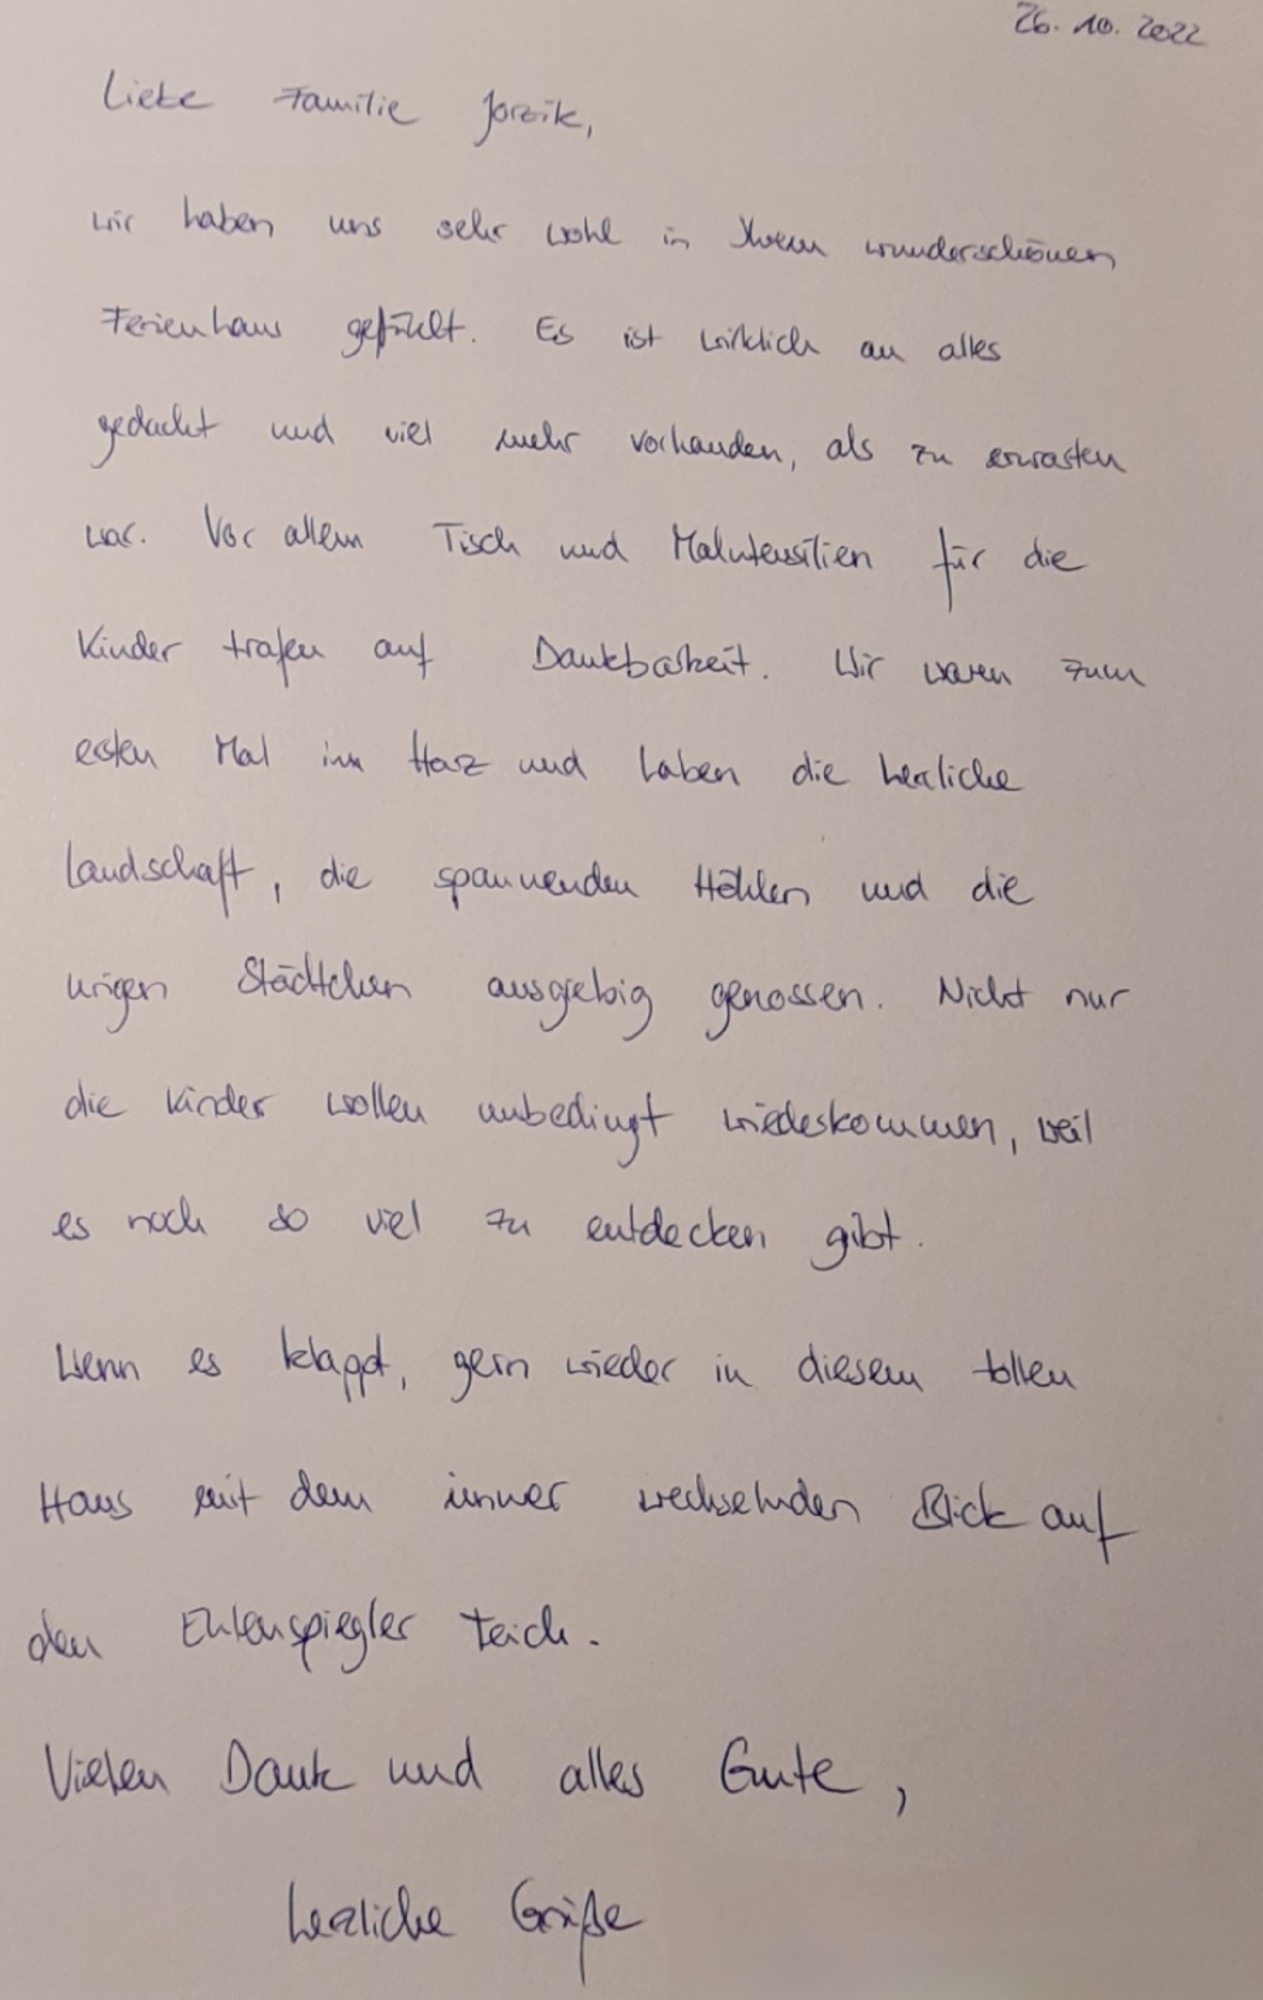 26.10.2022
Liebe Familie Jorzik,
wir haben uns sehr wohl in Ihrem wunderschönen
Ferienhaus gefühlt. Es ist wirklich an alles
gedacht und viel mehr vorhanden, als zu erwarten
war. Vor allem Tisch und Malutensilien für die
Kinder trafen auf Dankbarkeit. Wir waren zum
ersten Mal im Harz und haben die herrliche
Landschaft, die spannenden Höhlen und die
urigen Städtchen ausgiebig genossen. Nicht nur
die Kinder wollen unbedingt wiederkommen, weil
es noch so viel zu entdecken gibt.
Wenn es klappt, gern wieder in diesem tollen
Haus mit dem immer wechselnden Blick auf
den Eulenspiegler Teich.
Vielen Dank und alles Gute,
herzliche Grüße